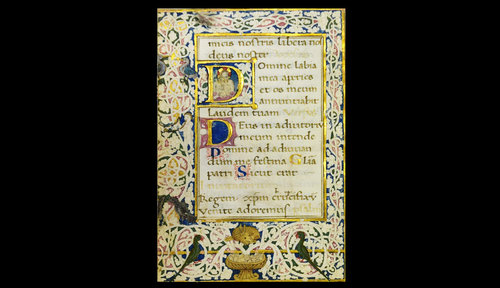 imicis nostris libera nos
deus noster
Domine labia
mea aperies
et os meum
annuntiabit
Laudem tuam
Deus in adiutoriu
meum intende
Domine ad adiuvan
dum me festina Glia
patri Sicut erat
Regem xpm crucifixu
Venite adoremus